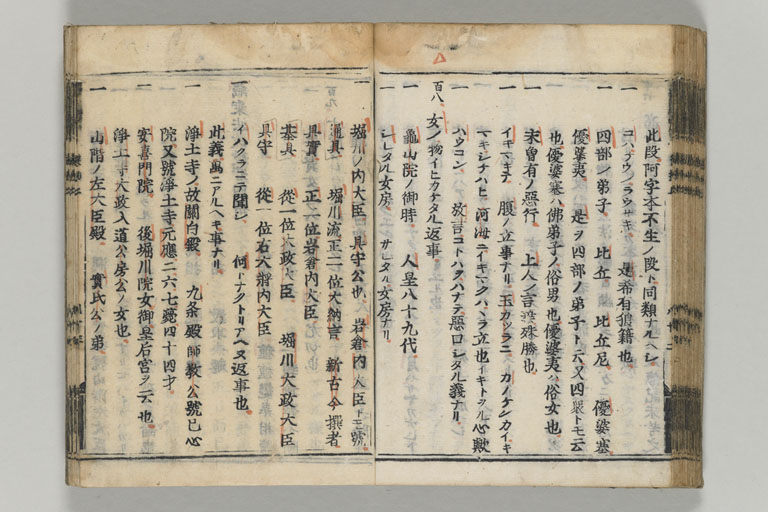 此段阿字本不生ノ段ト同類ナルヘシ
一 コハナウノラウサキ 是希有狼籍也
一 四部ノ弟子 比丘 比丘尼 優婆塞
優婆夷 是ヲ四部ノ弟子ト云又四衆トモ云
也優婆塞ハ佛弟子ノ俗男也優婆夷ハ俗女也
一 未曾有ノ悪行 上人ノ言殊勝也
一 イキマキテ 腹ノ立事ナリ玉カツラニ カノケンカイキ
マキシナハヒ 河海ニイキマクハハラ立也イキトヲル心歟
一 ハウコン 放言コトハヲハナテ悪口シタル義ナリ
百八 女ノ物イヒカケタル返事
一 龜山院ノ御時 人皇八十九代
一 シレタル女房 サレタル女房ナリ
一 堀川ノ内大臣 具守公也 岩倉内大臣ト王號
通具 堀川流正二位大納言 新古今撰者
具實 正二位岩倉内大臣
基具 從一位太政大臣 堀川大政大臣
具守 從一位右大將内大臣
一 イハクラニテ聞シ 何トナクトリアヘヌ返事也
此義萬ニアルヘキ事ナリ
一 淨土寺ノ故關白殿 九条殿師教公號已心
院又號淨土寺元應二六七薨四十四才
一 安喜門院 後堀川院女御皇后宮ヲ云也
淨土寺大政入道公房公ノ女也
一 山階ノ左大臣殿 實氏公ノ弟